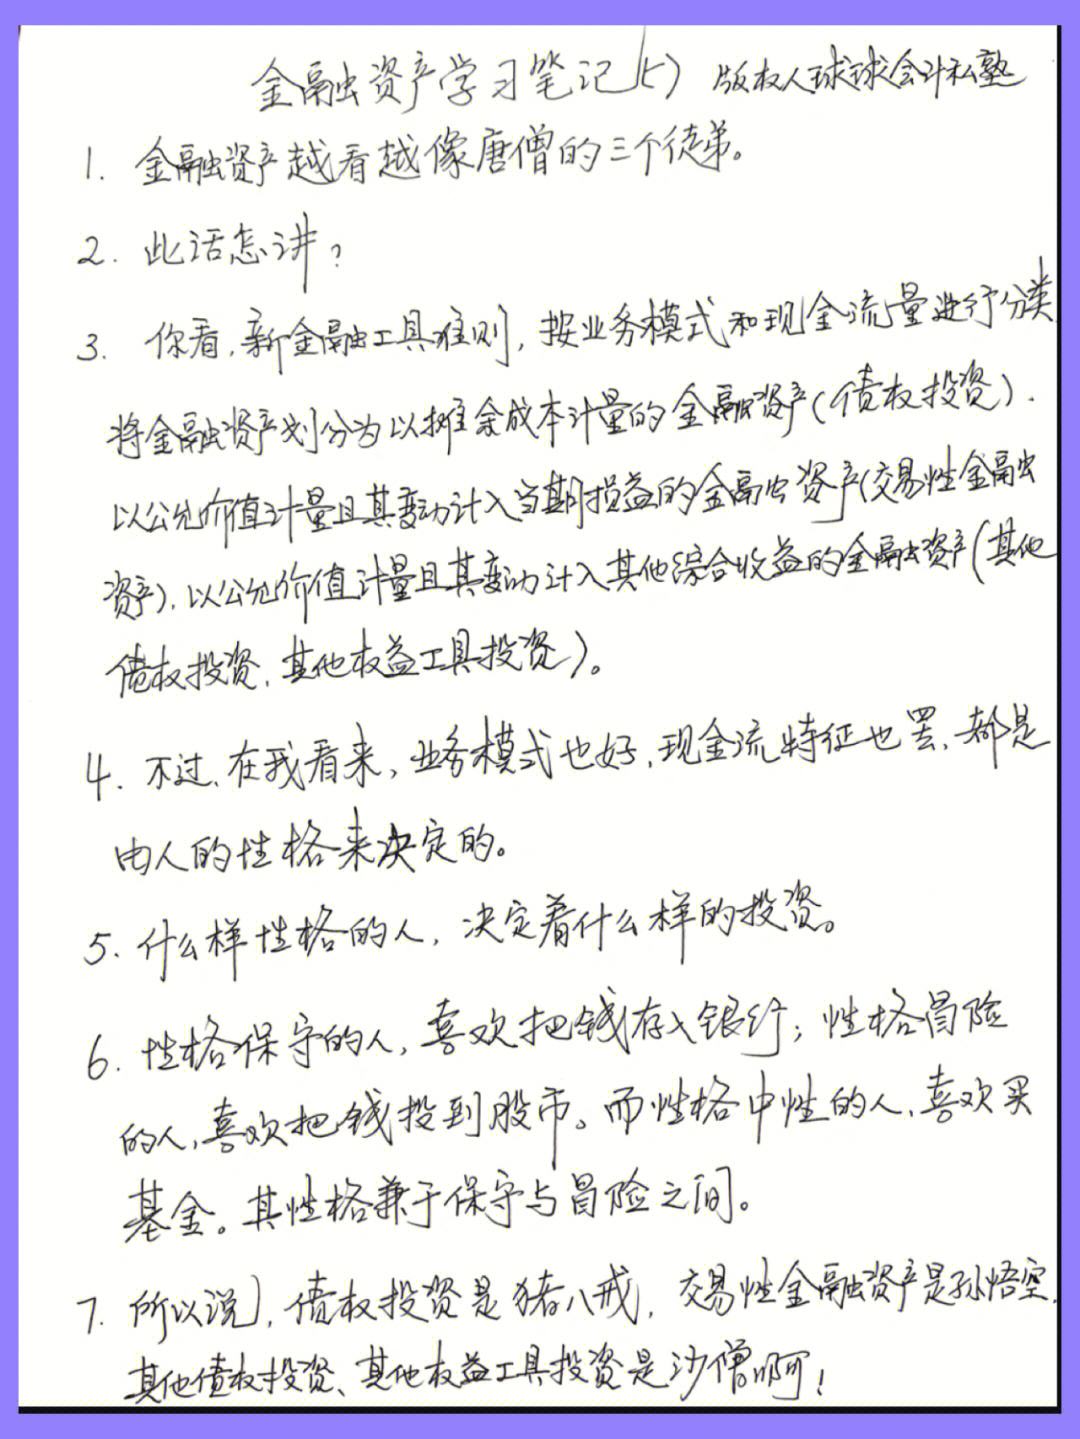 金融资产学习笔记(七) 版权人球球会计私塾
1. 金融资产越看越像唐僧的三个徒弟。
2. 此话怎讲？
3. 你看,新金融工具准则,按业务模式和现金流量进行分类,
将金融资产划分为以摊余成本计量的金融资产(债权投资)、
以公允价值计量且其变动计入当期损益的金融资产(交易性金融
资产)、以公允价值计量且其变动计入其他综合收益的金融资产(其他
债权投资、其他权益工具投资)。
4. 不过,在我看来,业务模式也好,现金流特征也罢,都是
由人的性格来决定的。
5. 什么样性格的人,决定着什么样的投资。
6. 性格保守的人,喜欢把钱存入银行;性格冒险
的人,喜欢把钱投到股市。而性格中性的人,喜欢买
基金。其性格兼于保守与冒险之间。
7. 所以说,债权投资是猪八戒,交易性金融资产是孙悟空,
其他债权投资、其他权益工具投资是沙僧啊!